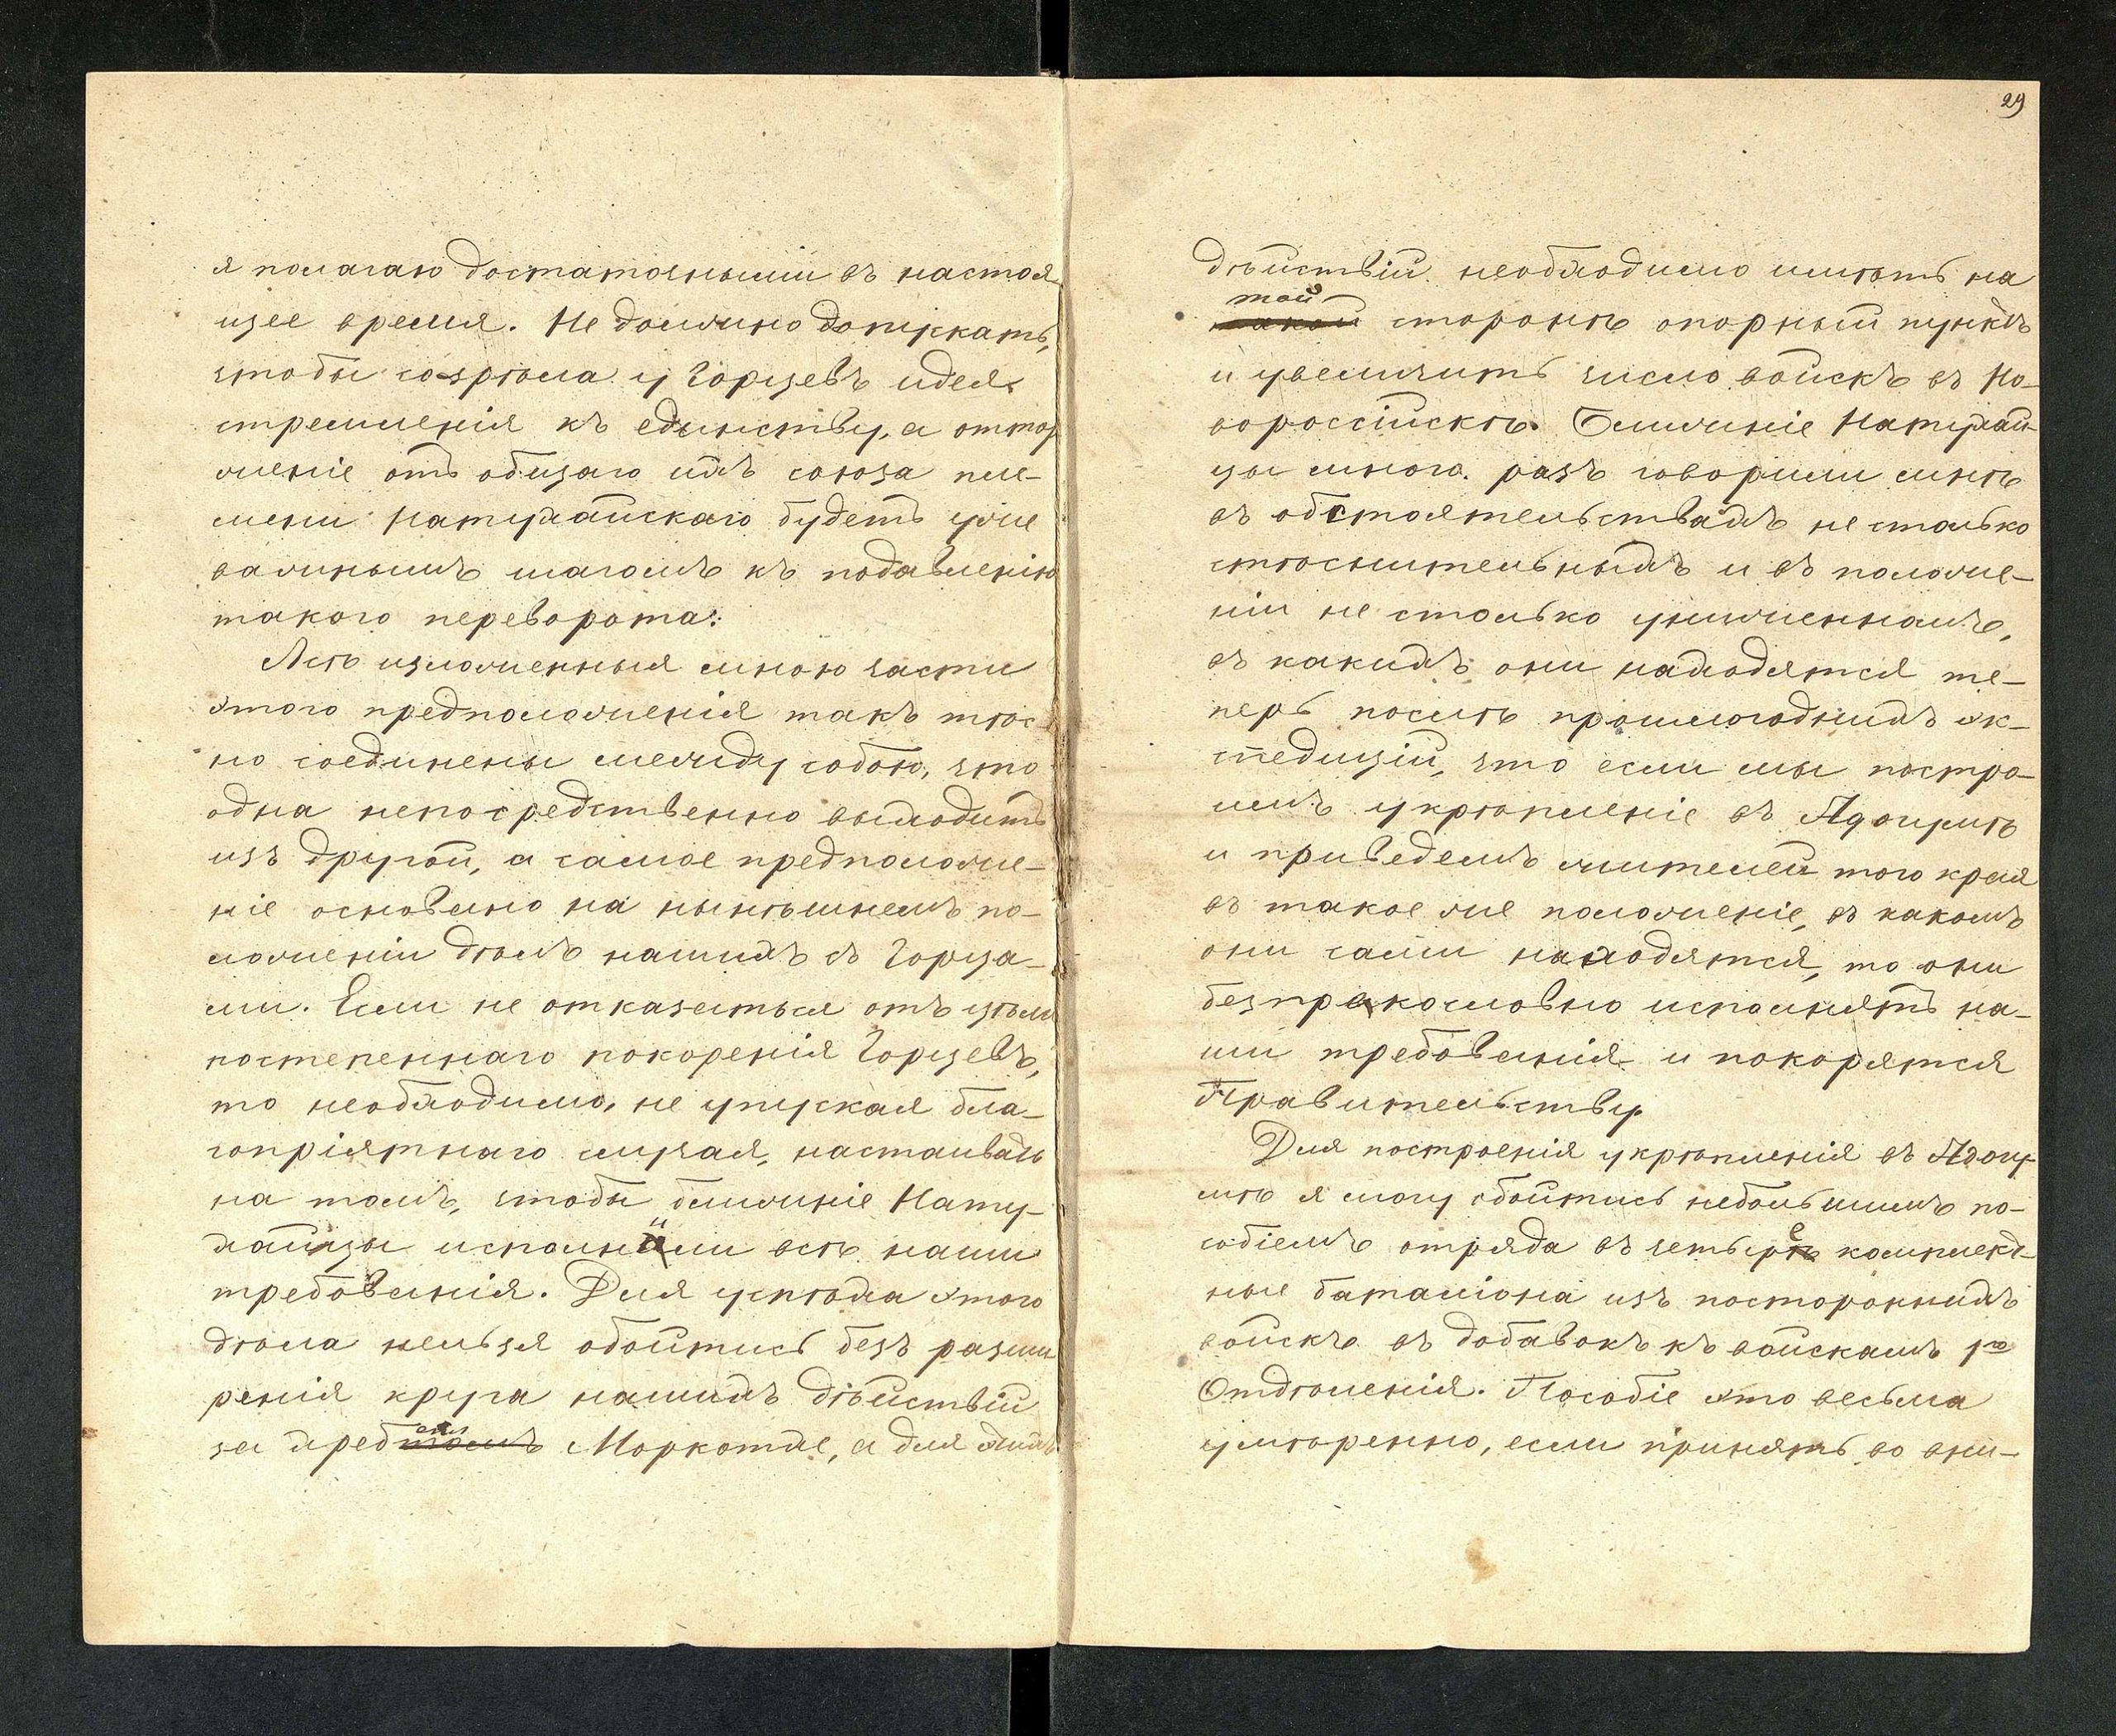 я полагаю достаточными въ настоя-
щее время. Не должно допускать,
чтобы созрѣла у Горцевъ идея
стремленія къ единству, а оттор
женіе отъ общаго ихъ союза пле-
мени Натухайскаго будетъ уже
важнымъ шагомъ къ подавленію
такого переворота.
Всѣ изложенныя мною части
этого предположенія такъ тѣс-
но соединены между собою, что
одна непосредственно выходитъ
изъ другой, а самое предположе-
ніе основано на нынѣшнемъ по-
ложеніи дѣлъ нашихъ съ Горца-
ми. Если не отказаться отъ цѣли
постепеннаго покоренія Горцевъ,
то необходимо, не упуская бла-
гопріятнаго случая, настаивать
на томъ, чтобы ближніе Нату-
хайцы исполняли всѣ наши
требованія. Для успѣха этого
дѣла нельзя обойтись безъ разши
ренія круга нашихъ дѣйствій
за хребтомъ Маркотхе, а для этихъ
29
дѣйствій необходимо имѣть на
той
такой сторонѣ опорный пунктъ
и увеличить число войскъ въ Но-
вороссійскѣ. Ближніе Натухай-
цы много разъ говорили мнѣ
въ обстоятельствахъ не столько
стѣснительныхъ и въ положе-
ніи не столько униженномъ,
въ какихъ они находятся те-
перь послѣ прошлогоднихъ эк-
спедицій, что если мы постро-
имъ укрѣпленіе въ Адагумѣ
и приведемъ жителей того края
въ такое же положеніе, въ какомъ
они сами находятся, то они
безпрекословно исполнятъ на-
ши требованія и покорятся
Правительству.
Для построенія укрѣпленія въ Адагу-
мѣ я могу обойтись небольшимъ по-
собіемъ отряда въ четыре комплект-
ные баталіона изъ постороннихъ
войскъ въ добавокъ къ войскамъ 1го
Отдѣленія. Пособіе это весьма
умѣренно, если принять во вни-